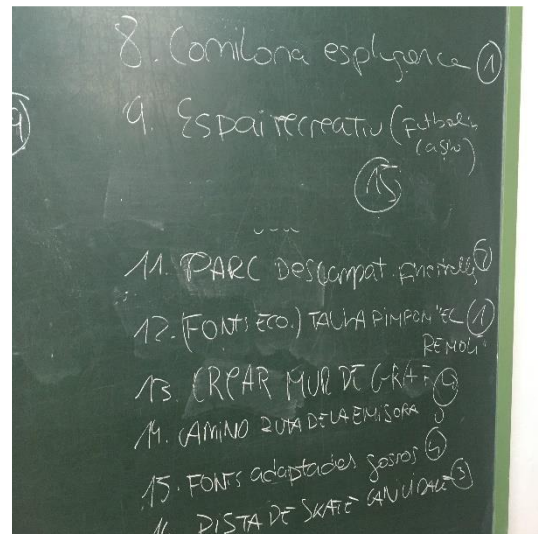 8. Comilona esplugence ①
9. Espai recreatiu (Futbolin
casino)
⑮
11. PARC Descampat. Finestrelles
12. (FONTS ECO.) TAULA PIMPOM "EL ①
REMOLÍ"
13. CREAR MUR DE GRAF
14. CAMINO RUTA DE LA EMISORA 0
15. FONTS adaptades gossos
16. PISTA DE SKATE CAN VIDALET ③